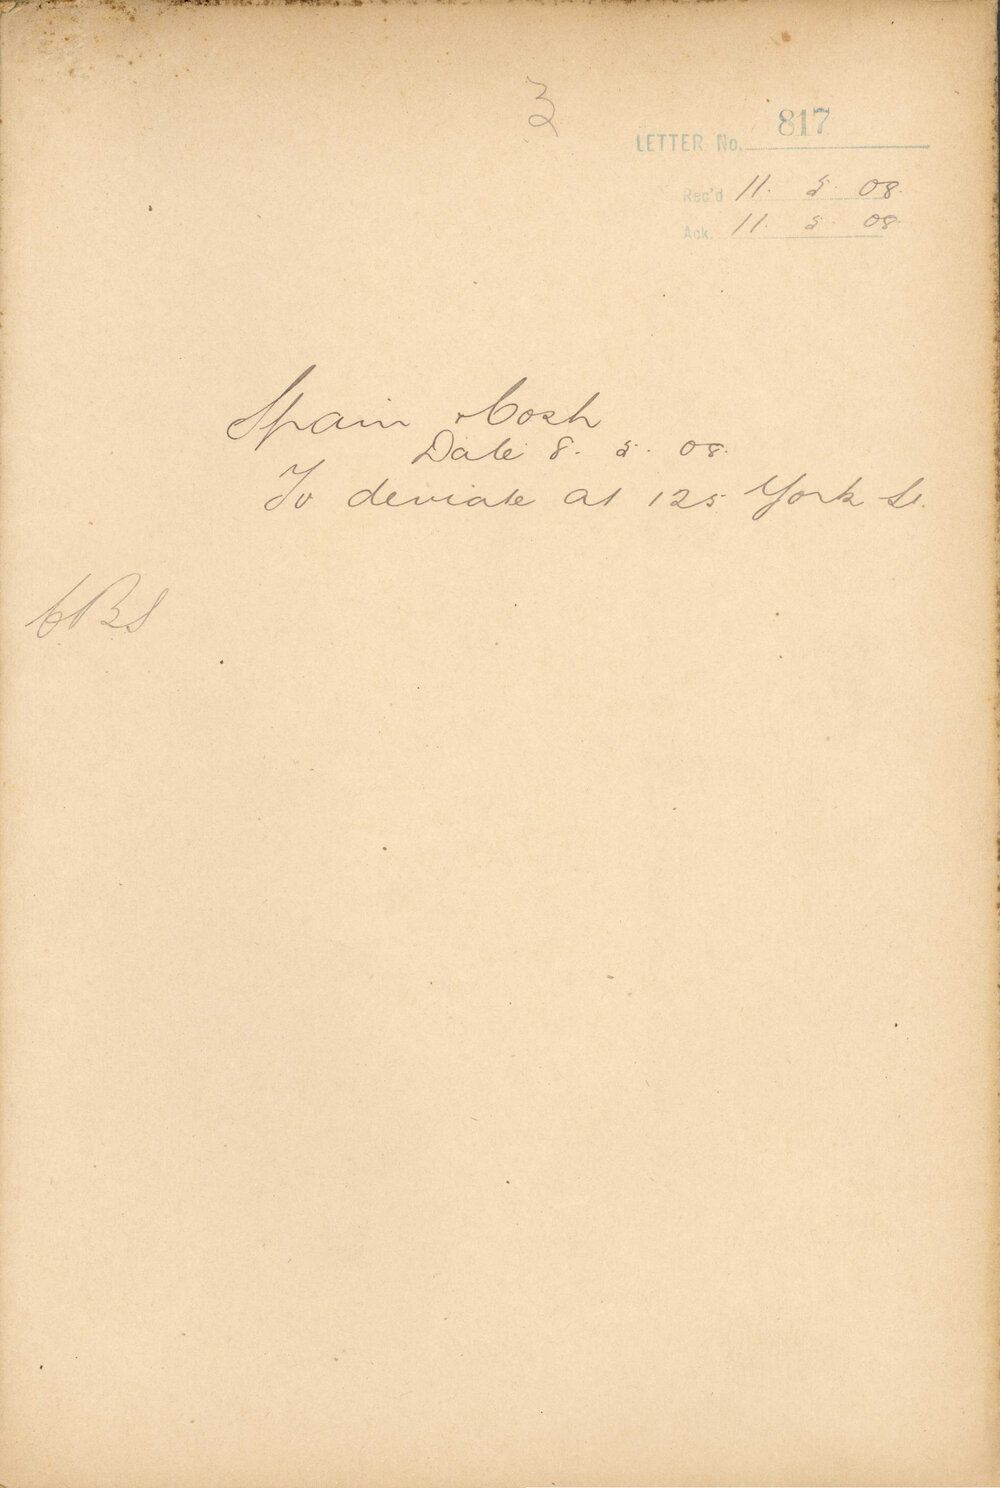 3
LETTER No. 817
Rec'd 11. 5. 08.
Ack. 11. 5. 08
Spain & Cosh
Date 8. 5. 08.
To deviate at 125 York St.
CBS